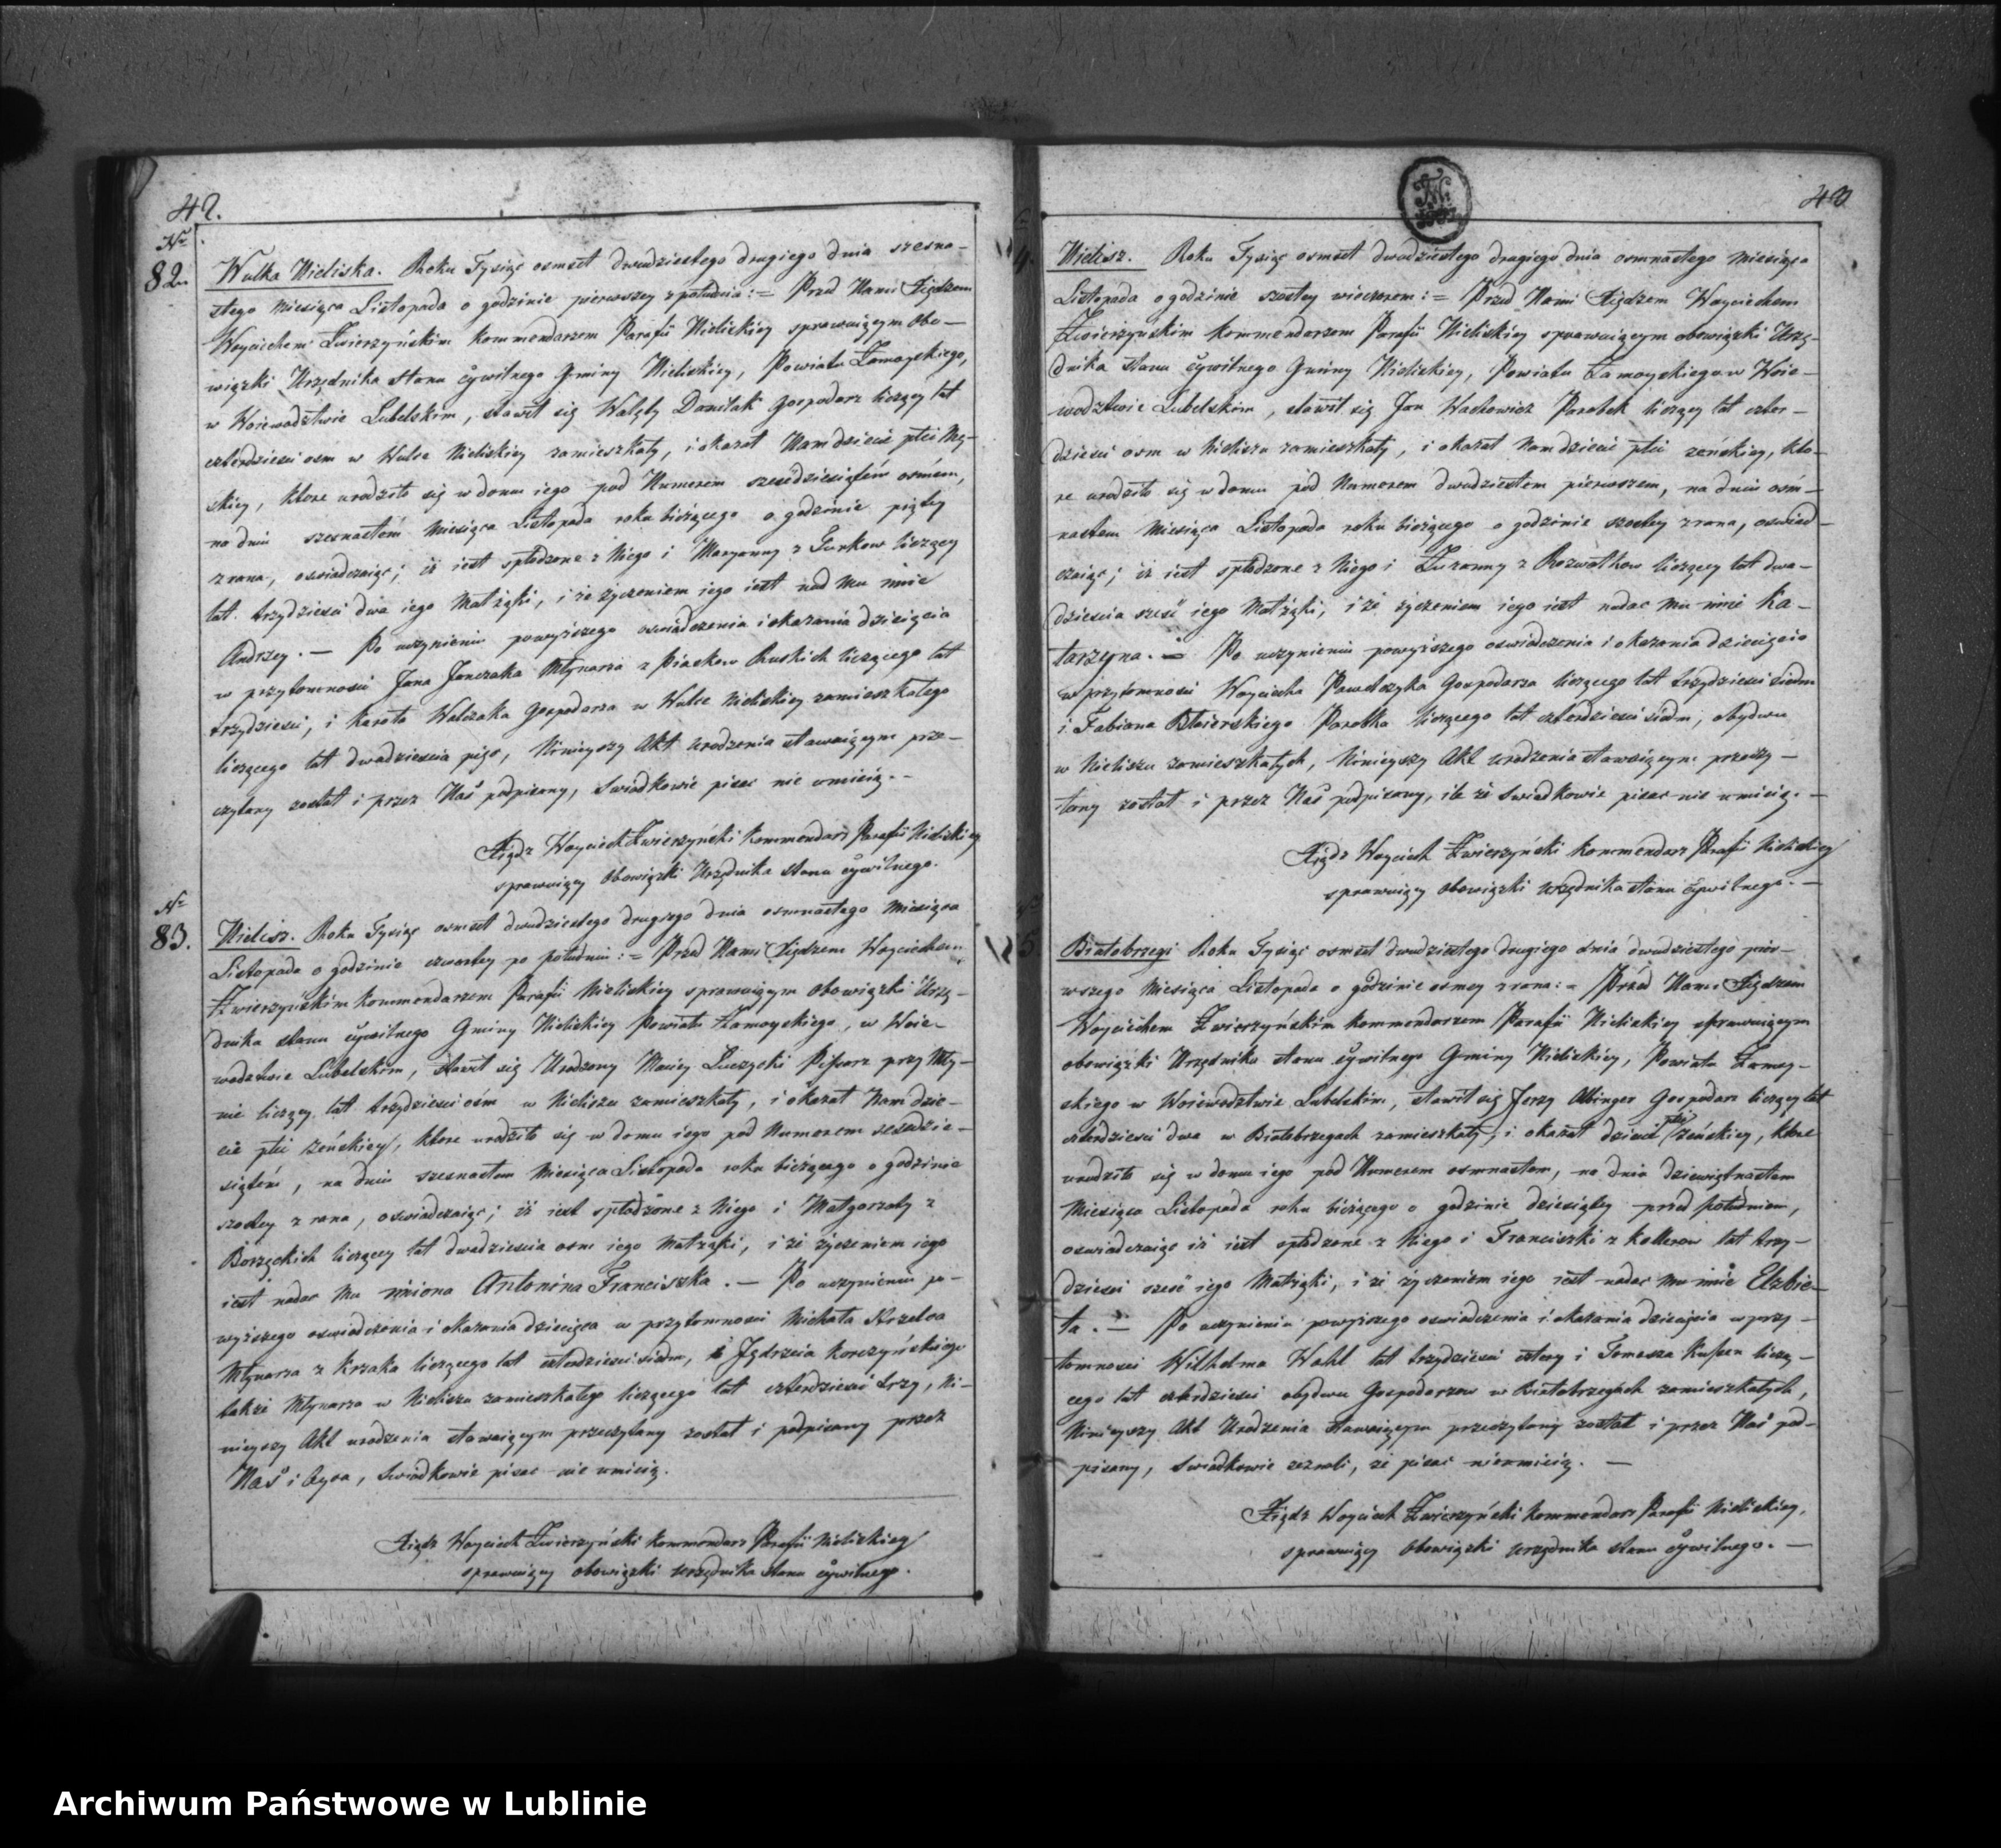 42.
Nr
82.
Wulka Nieliska. Roku Tysiąc osmset dwudziestego drugiego dnia szesna-
stego Miesiąca Listopada o godzinie pierwszey z południa := Przed Nami Xiędzem
Woyciechem Zwierzyńskim Kommendarzem Parafii Nieliskiey sprawuiącym Obo-
wiązki Urzędnika Stanu Cywilnego Gminy Nieliskiey, Powiatu Zamoyskiego,
w Woiewodztwie Lubelskim, stawił się Walęty Daniłak Gospodarz liczący lat
czterdzieści osm w Wulce Nieliskiey zamieszkały, i okazał Nam dziecie płci Mę-
skiey, ktore urodziło się w domu iego pod Numerem sześćdziesiątem osmem,
na dniu szesnastem Miesiąca Listopada roku bieżącego o godzinie piątey
z rana, oswiadczaiąc; iż iest spłodzone z Niego i Maryanny z Turkow liczącey
lat trzydzieści dwa iego Małżąki, i że życzeniem iego iest nad Mu imie
Andrzey. — Po uczynieniu powyższego oswiadczenia i okazania dziecięcia
w przytomnosci Jana Janczaka Młynarza z Piaskow Ruskich liczącego lat
trzydzieści, i Karola Walczaka Gospodarza w Wulce Nieliskiey zamieszkałego
liczącego lat dwadzieścia pięć, Ninieyszy Akt urodzenia stawaiącym prze-
czytany został i przez Nas podpisany, Swiadkowie pisac nie umieią. -
Xiądz Woyciech Zwierzyński Kommendarz Parafii Nieliskiey
sprawuiący Obowiązki Urzędnika Stanu Cywilnego.
Nr
83.
Nielisz. Roku Tysiąc osmset dwudziestego drugiego dnia osmnastego Miesiąca
Listopada o godzinie czwartey po południu := Przed Nami Xiędzem Woyciechem
Zwierzyńskim Kommendarzem Parafii Nieliskiey sprawuiącym Obowiązki Urzę-
dnika stanu cywilnego Gminy Nieliskiey Powiatu Zamoyskiego, w Woie-
wodztwie Lubelskim, stawił się Urodzony Maciey Łuczycki Pisarz przy Mły-
nie liczący lat trzydzieści ośm w Nieliszu zamieszkały, i okazał Nam dzie-
cie płci żeńskiey, ktore urodziło się w domu iego pod Numerem sześdzie-
siątem, na dniu szesnastem Miesiąca Listopada roku bieżącego o godzinie
szostey z rana, oswiadczaiąc; iż iest spłodzone z Niego i Małgorzaty z
Borzęckich liczącey lat dwadzieścia osm iego Małżąki, i że życzeniem iego
iest nadac Mu imiona Antonina Franciszka. — Po uczynieniu po-
wyższego oswiadczenia i okazania dziecięca w przytomnosci Michała Strzelca
Młynarza z Krzaka liczącego lat czterdzieści siedm, i Jędrzeia Korczyńskiego
także Młynarza w Nieliszu zamieszkałego liczącego lat czterdzieści trzy, Ni-
nieyszy Akt urodzenia stawaiącym przeczytany został i podpisany przez
Nas i Oyca, Swiadkowie pisac nie umieią.
Xiądz Woyciech Zwierzyński Kommendarz Parafii Nieliskiey
sprawuiący obowiązki urzędnika Stanu Cywilnego.
43
Nielisz. Roku Tysiąc osmset dwudziestego drugiego dnia osmnastego Miesiąca
Listopada o godzinie szostey wieczorem := Przed Nami Xiędzem Woyciechem
Zwierzyńskim Kommendarzem Parafii Nieliskiey sprawuiącym obowiązki Urzę-
dnika Stanu Cywilnego Gminy Nieliskiey, Powiatu Zamoyskiego w Woie-
wodztwie Lubelskim, stawił się Jan Wachowicz Parobek liczący lat czter-
dzieści osm w Nieliszu zamieszkały, i okazał Nam dziecie płci żeńskiey, kto-
re urodziło się w domu pod Numerem dwudziestem pierwszem, na dniu osm-
nastem Miesiąca Listopada roku bieżącego o godzinie szostey z rana, oswiad-
czaiąc; iż iest spłodzone z Niego i Zuzanny z Rozwałkow liczącey lat dwa-
dzieścia sześć iego Małżąki, i że życzeniem iego iest nadac Mu imie Ka-
tarzyna. — Po uczynieniu powyższego oswiadczenia i okazania dziecięcia
w przytomnosci Woyciecha Pawełczyka Gospodarza liczącego lat trzydzieści siedm
i Fabiana Parobka liczącego lat czterdzieści siedm, obydwu
w Nieliszu zamieszkałych, Ninieyszy Akt urodzenia stawaiącym przeczy-
tany został i przez Nas podpisany, ile że Swiadkowie pisac nie umieią. —
Xiądz Woyciech Zwierzyński Kommendarz Parafii Nieliskiey
sprawuiący obowiązki urzędnika stanu cywilnego. —
5
Białobrzegi Roku Tysiąc osmset dwudziestego drugiego dnia dwudziestego pier-
wszego Miesiąca Listopada o godzinie osmey z rana: = Przed Nami Xiędzem
Woyciechem Zwierzyńskim Kommendarzem Parafii Nieliskiey sprawuiącym
obowiązki Urzędnika stanu cywilnego Gminy Nieliskiey, Powiatu Zamoy-
skiego w Woiewodztwie Lubelskim, stawił się Jerzy Albinger Gospodarz liczący lat
czterdzieści dwa w Białobrzegach zamieszkały, i okazał dziecie płci żeńskiey, ktore
urodziło się w domu iego pod Numerem osmnastem, na dniu dziewiętnastem
Miesiąca Listopada roku bieżącego o godzinie dziesiątey przed południem,
oswiadczaiąc iż iest spłodzone z Niego i Franciszki z Kellerow lat trzy-
dzieści sześć iego Małżąki, i że życzeniem iego iest nadac Mu imie Elzbie-
ta. — Po uczynieniu powyższego oswiadczenia i okazania dziecięcia w przy-
tomnosci Wilhelma Wahl lat trzydzieści cztery i Tomasza liczą-
cego lat czterdzieści obydwu Gospodarzow w Białobrzegach zamieszkałych,
Ninieyszy Akt Urodzenia stawaiącym przeczytany został i przez Nas pod-
pisany, Swiadkowie zeznali, że pisac nieumieią. —
Xiądz Woyciech Zwierzyński Kommendarz Parafii Nieliskiey,
sprawuiący Obowiązki urzędnika stanu Cywilnego. —
Archiwum Państwowe w Lublinie